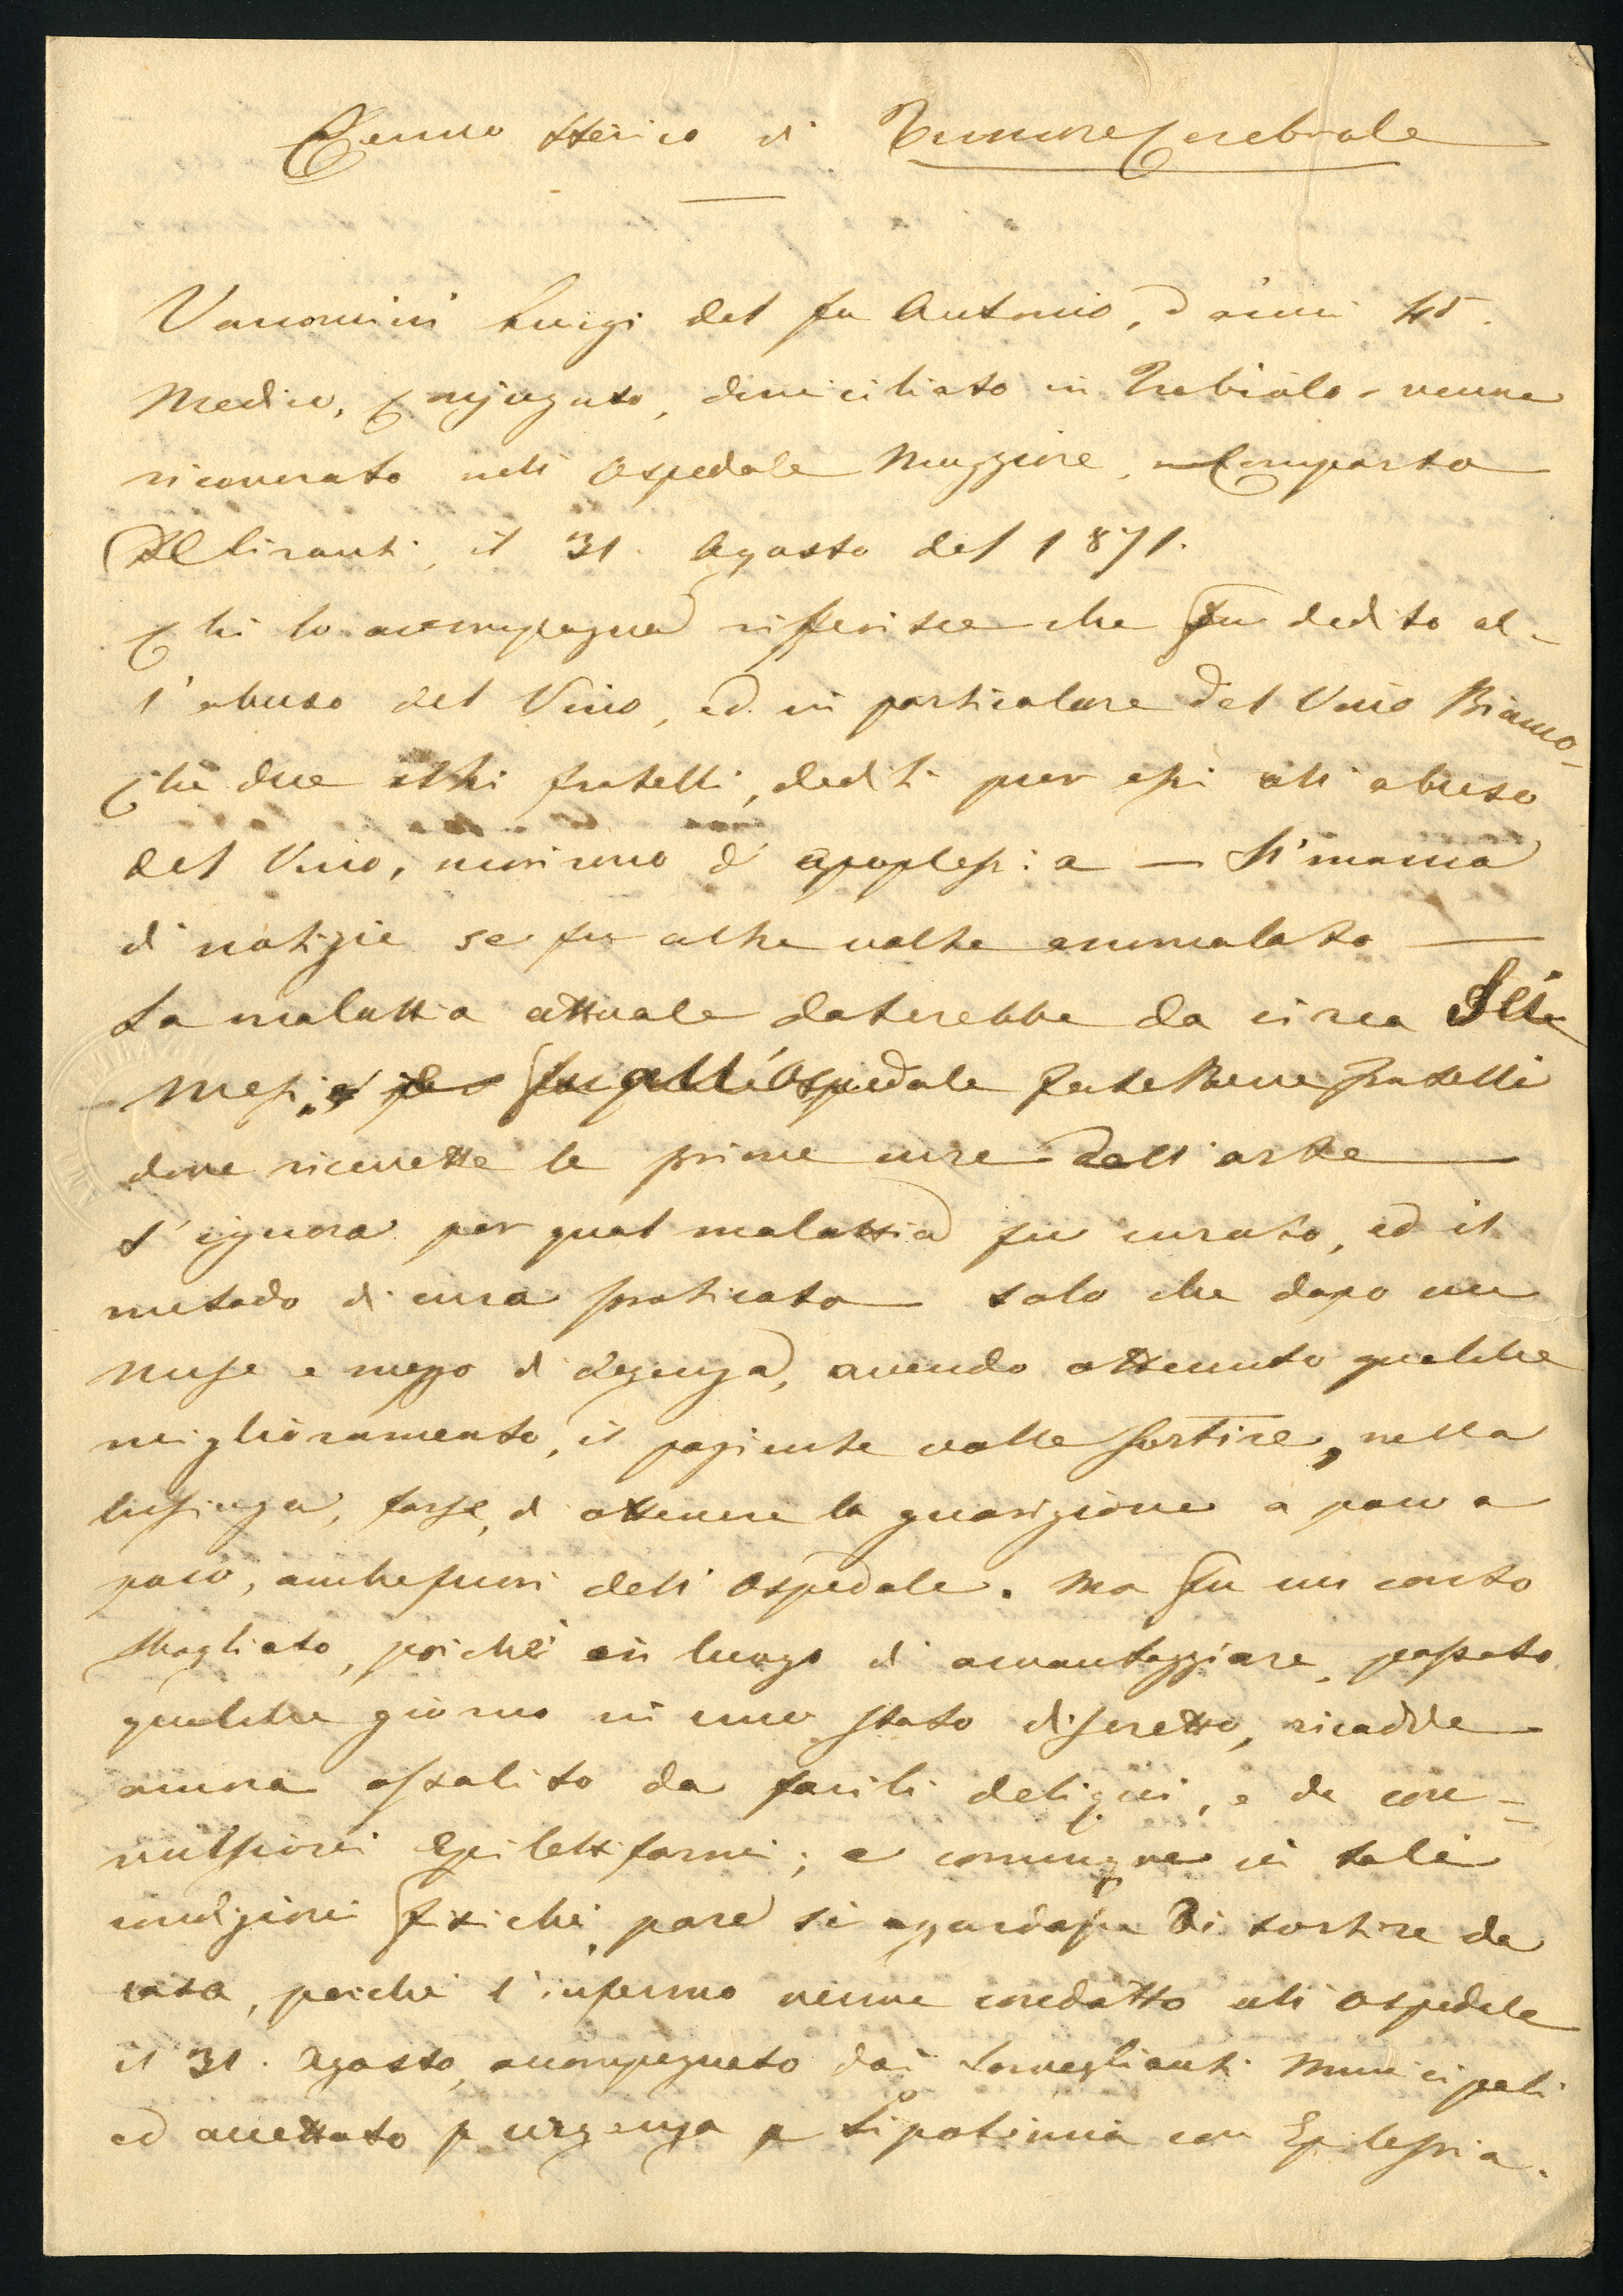 Cenno Storico di Tumore Cerebrale
Vanonini Luigi del fu Antonio, d'anni 45.
Medico, Conjugato, domiciliato in Trebiolo - venne
ricoverato nell' Ospedale Maggiore, Comparto
Deliranti, il 31. Agosto del 1871.
Chi lo accompagna rifferisce che fu dedito al-
l'abuso del Vino, ed in particolare del Vino Bianco -
Che due altri fratelli, dediti pur essi all'abuso
del Vino, morirono d' apoplessia — Si manca
di notizie se fu altre volte ammalato —
La malattia attuale daterebbe da circa Sei
Mesi, fu all'Ospedale FateBeneFratelli
dove ricevette le prime cure dell'arte —
S'ignora per qual malattia fu curato, ed il
metodo di cura praticato — solo che dopo un
mese e mezzo di degenza, avendo ottenuto qualche
miglioramento, il paziente volle sortire, nella
lusinga, forse, di ottenere la guarigione a poco a
poco, anche fuori dell' Ospedale. Ma fu un conto
sbagliato, poichè in luogo di avvantaggiare, passato
qualche giorno in uno stato discretto, ricadde
ancora assalito da facili deliqui, e da con-
vulsioni Epilettiformi; e comunque in tali
condizioni fisiche, pare si azzardasse di sortire da
casa, poichè l'infermo venne condotto all' Ospedale
il 31. Agosto, accompagnato dai Sorveglianti Municipali
ed accettato p urgenza p Lipotimia con Epilessia.